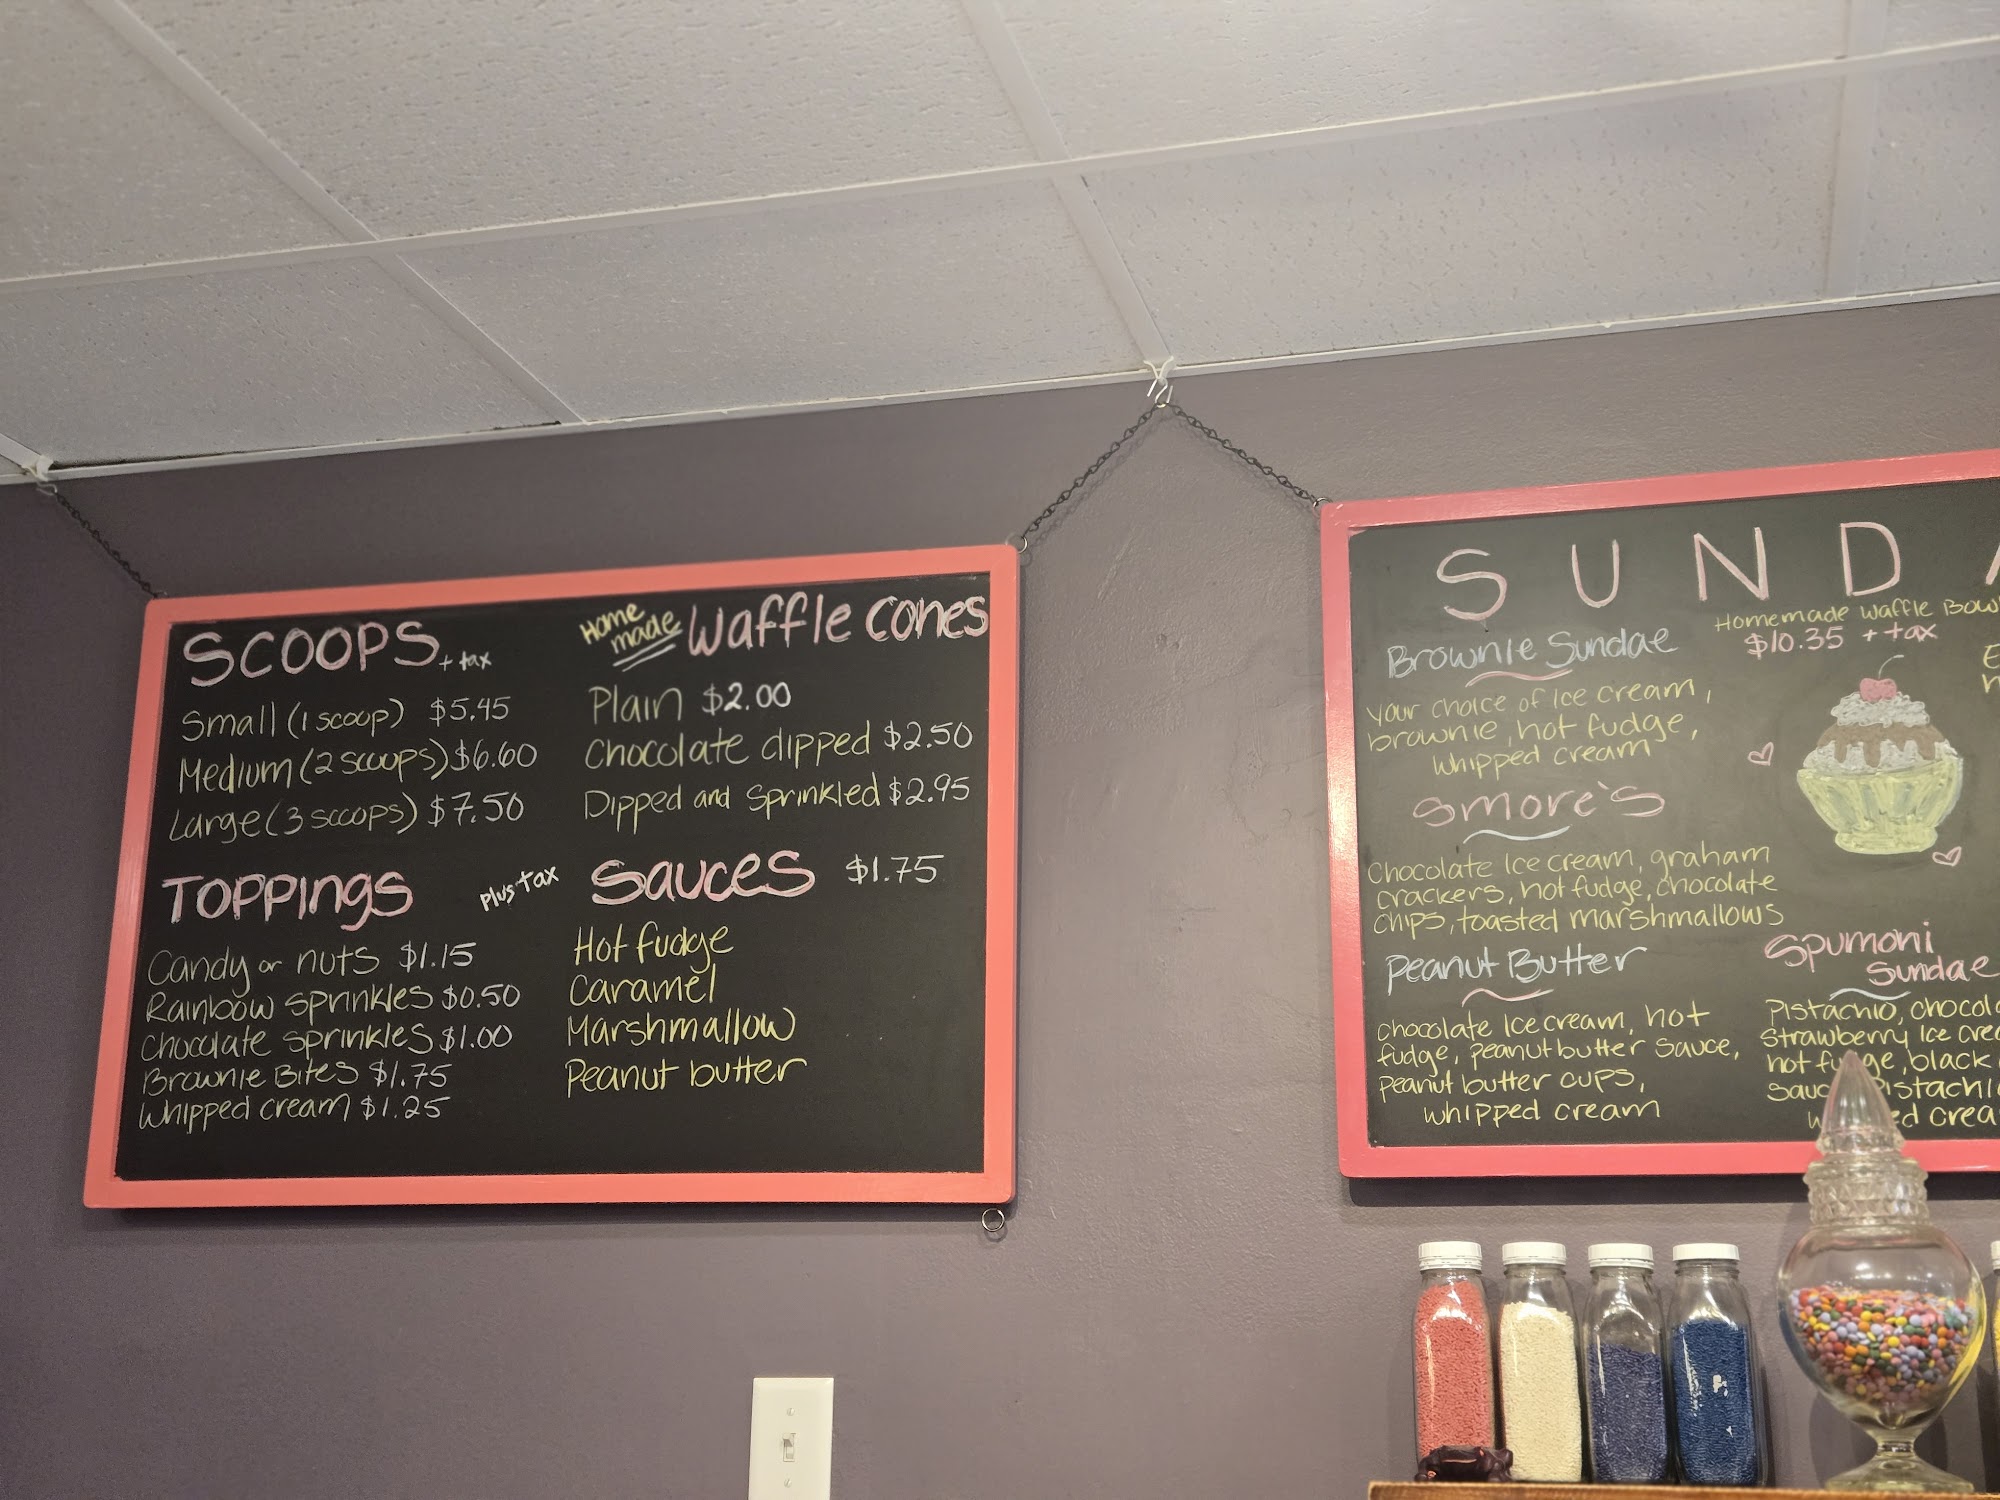 SCOOPS + tax
Small (1 scoop) $5.45
Medium (2 scoops) $6.60
Large (3 scoops) $7.50
TOPPINGS
plus tax
Candy or nuts $1.15
Rainbow sprinkles $0.50
Chocolate sprinkles $1.00
Brownie Bites $1.75
Whipped cream $1.25
Home made Waffle Cones
Plain $2.00
Chocolate dipped $2.50
Dipped and Sprinkled $2.95
Sauces $1.75
Hot fudge
Caramel
Marshmallow
Peanut butter
SUND
Homemade Waffle Bow
$10.35 + tax
Brownie Sundae
Your choice of Ice cream,
brownie, hot fudge,
whipped cream
Smore's
Chocolate Ice cream, graham
crackers, hot fudge, chocolate
chips, toasted marshmallows
Peanut Butter
chocolate Ice cream, hot
fudge, peanut butter sauce,
peanut butter cups,
whipped cream
Spumoni
Sundae
Pistachio, chocol
Strawberry Ice crea
hot fudge, black